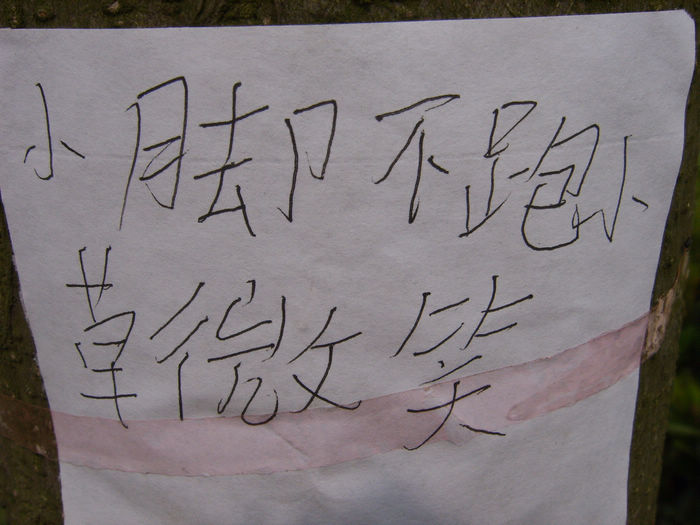 小脚不跑小
草微笑